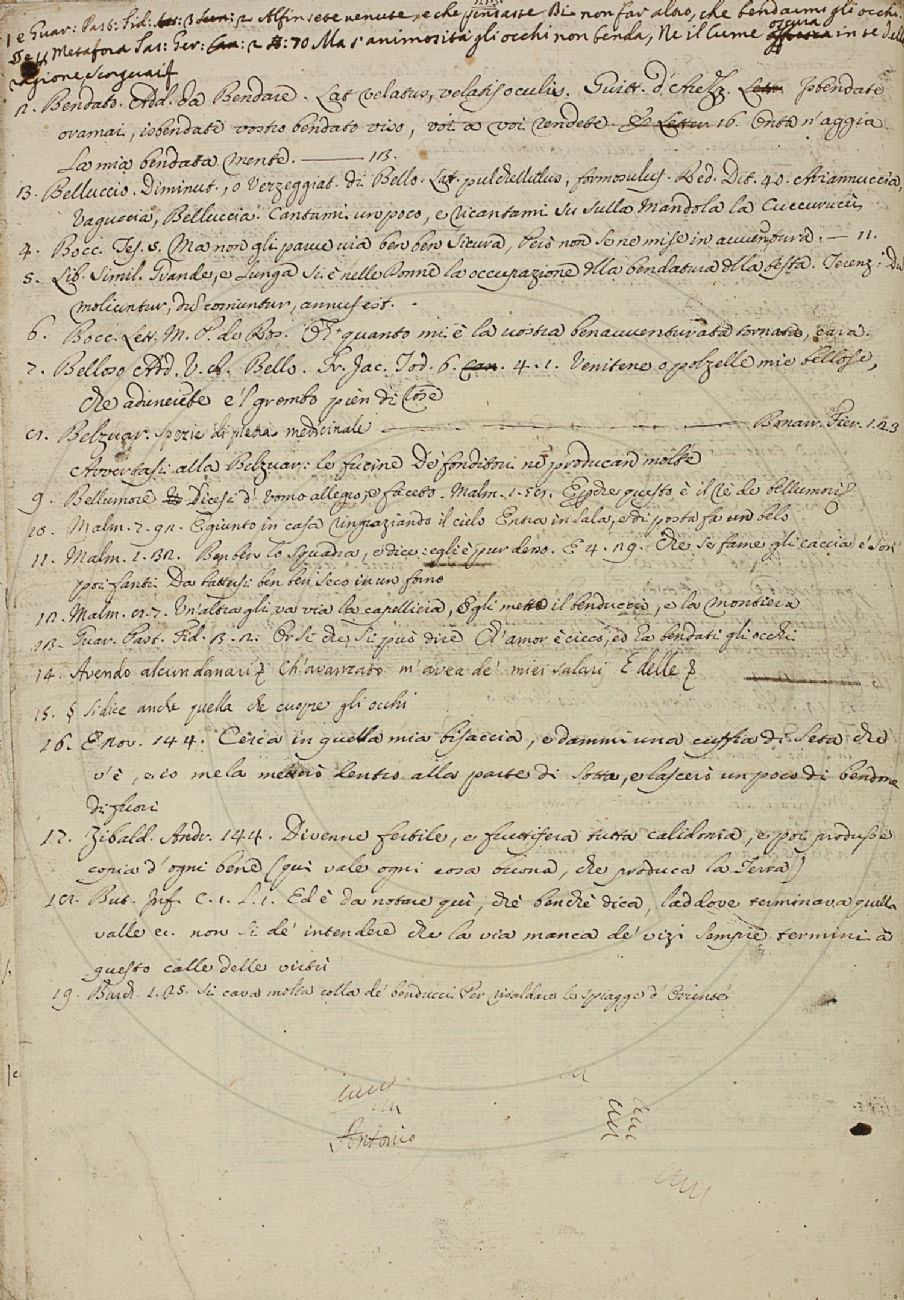 1 e Guar: Past: Fid: 3 2 Alfin sete venute, e che pensaste Di non far altro, che bendarmi gli occhi.
Metafora Tas: Ger: 2 : 70 Ma s'animosità gli occhi non benda, Ne il lume oscura in te della
ragione
2. Bendato. Add. da Bendare. Lat velatus, velatis oculis. Guitt. d'Arezz. Isbendate
oramai, isbendate vostro bendato viso, voi a voi rendete. 16. Onta n'aggia
La mia bendata mente. 13.
13. Belluccio. Diminut., o Vezzeggiat. di Bello. Lat. pulchellulus, formosulus. Red. Dit. 40. Ariannuccia,
Vaguccia, Belluccia. Cantami un poco, e ricantami Su sulla Mandola la Cuccurucù
4. Bocc. Tes. 5. Ma non gli parve via ben ben sicura, Però non se ne mise in avventura. — 11.
5. Lib. Simil. Grande, e lunga si è nelle Donne la occupazione della bendatura della testa. Terenz: Du
moliuntur, dum comuntur, annus est.
6. Bocc. Lett. M. P. de Ros. O quanto mi è la vostra benavventurata tornata, cara.
7. Belloso Add. V. A. Bello. Fr. Jac. Tod. 6. 4. 1. Venitene o polzelle mie bellose,
che adunerete e 'l grembo pien di rose
8. Belzuar. Spezie di pietra medicinale Bonarr. Fier. 1.2.3
Avvertasi alla Belzuar: le fucine De' fonditori ne producan molte
9. Bellumore Dicesi d'Uomo allegro, e faceto. Malm. 1. 58. Egeno questo è il re de bellumori
10. Malm. 7. 92. E giunto in casa ringraziando il cielo Entra in sala, e di posta fa un belo
11. Malm. 1. 32. Ben ben lo squadra, e dice: egli è pur deno. E 4. 29. Che se fame gli caccia e son
poi fanti Da battersi ben ben seco in un forno
12. Malm. 8. 7. Un'altra gli va via la capelliera, E gli mette il benduccio, e la montiera
13. Guar. Past. Fid. 3. 2. Or si che si può dire Ch'amor è cieco, ed ha bendati gli occhi
14. Avendo alcun danari Ch'avanzato m'avea de' miei salari E delle
15. § si dice anche quella che cuopre gli occhi
16. E nov. 144. Cerca in quella mia bisaccia, e dammi una cuffia di seta che
v'è, e io me la metterò dentro alla parte di sotto, e lascerò un poco di bendone
di fuori
17. Zibald. Andr. 144. Divenne fertile, e fruttifera tutta calidonia, e poi produsse
copia d'ogni bene (qui vale ogni cosa buona, che produca la Terra)
18. But. Inf. C. 1. L. 1. Ed è da notare quì, chè benchè dica, laddove terminava quella
valle ec. non si de' intendere che la via manca de' vizi sempre termini a
questo calle delle virtù
19. Burch. 1. 25. Si cava molta colla de' benducci Per risaldare le spiagge d'Oriente
Antonio